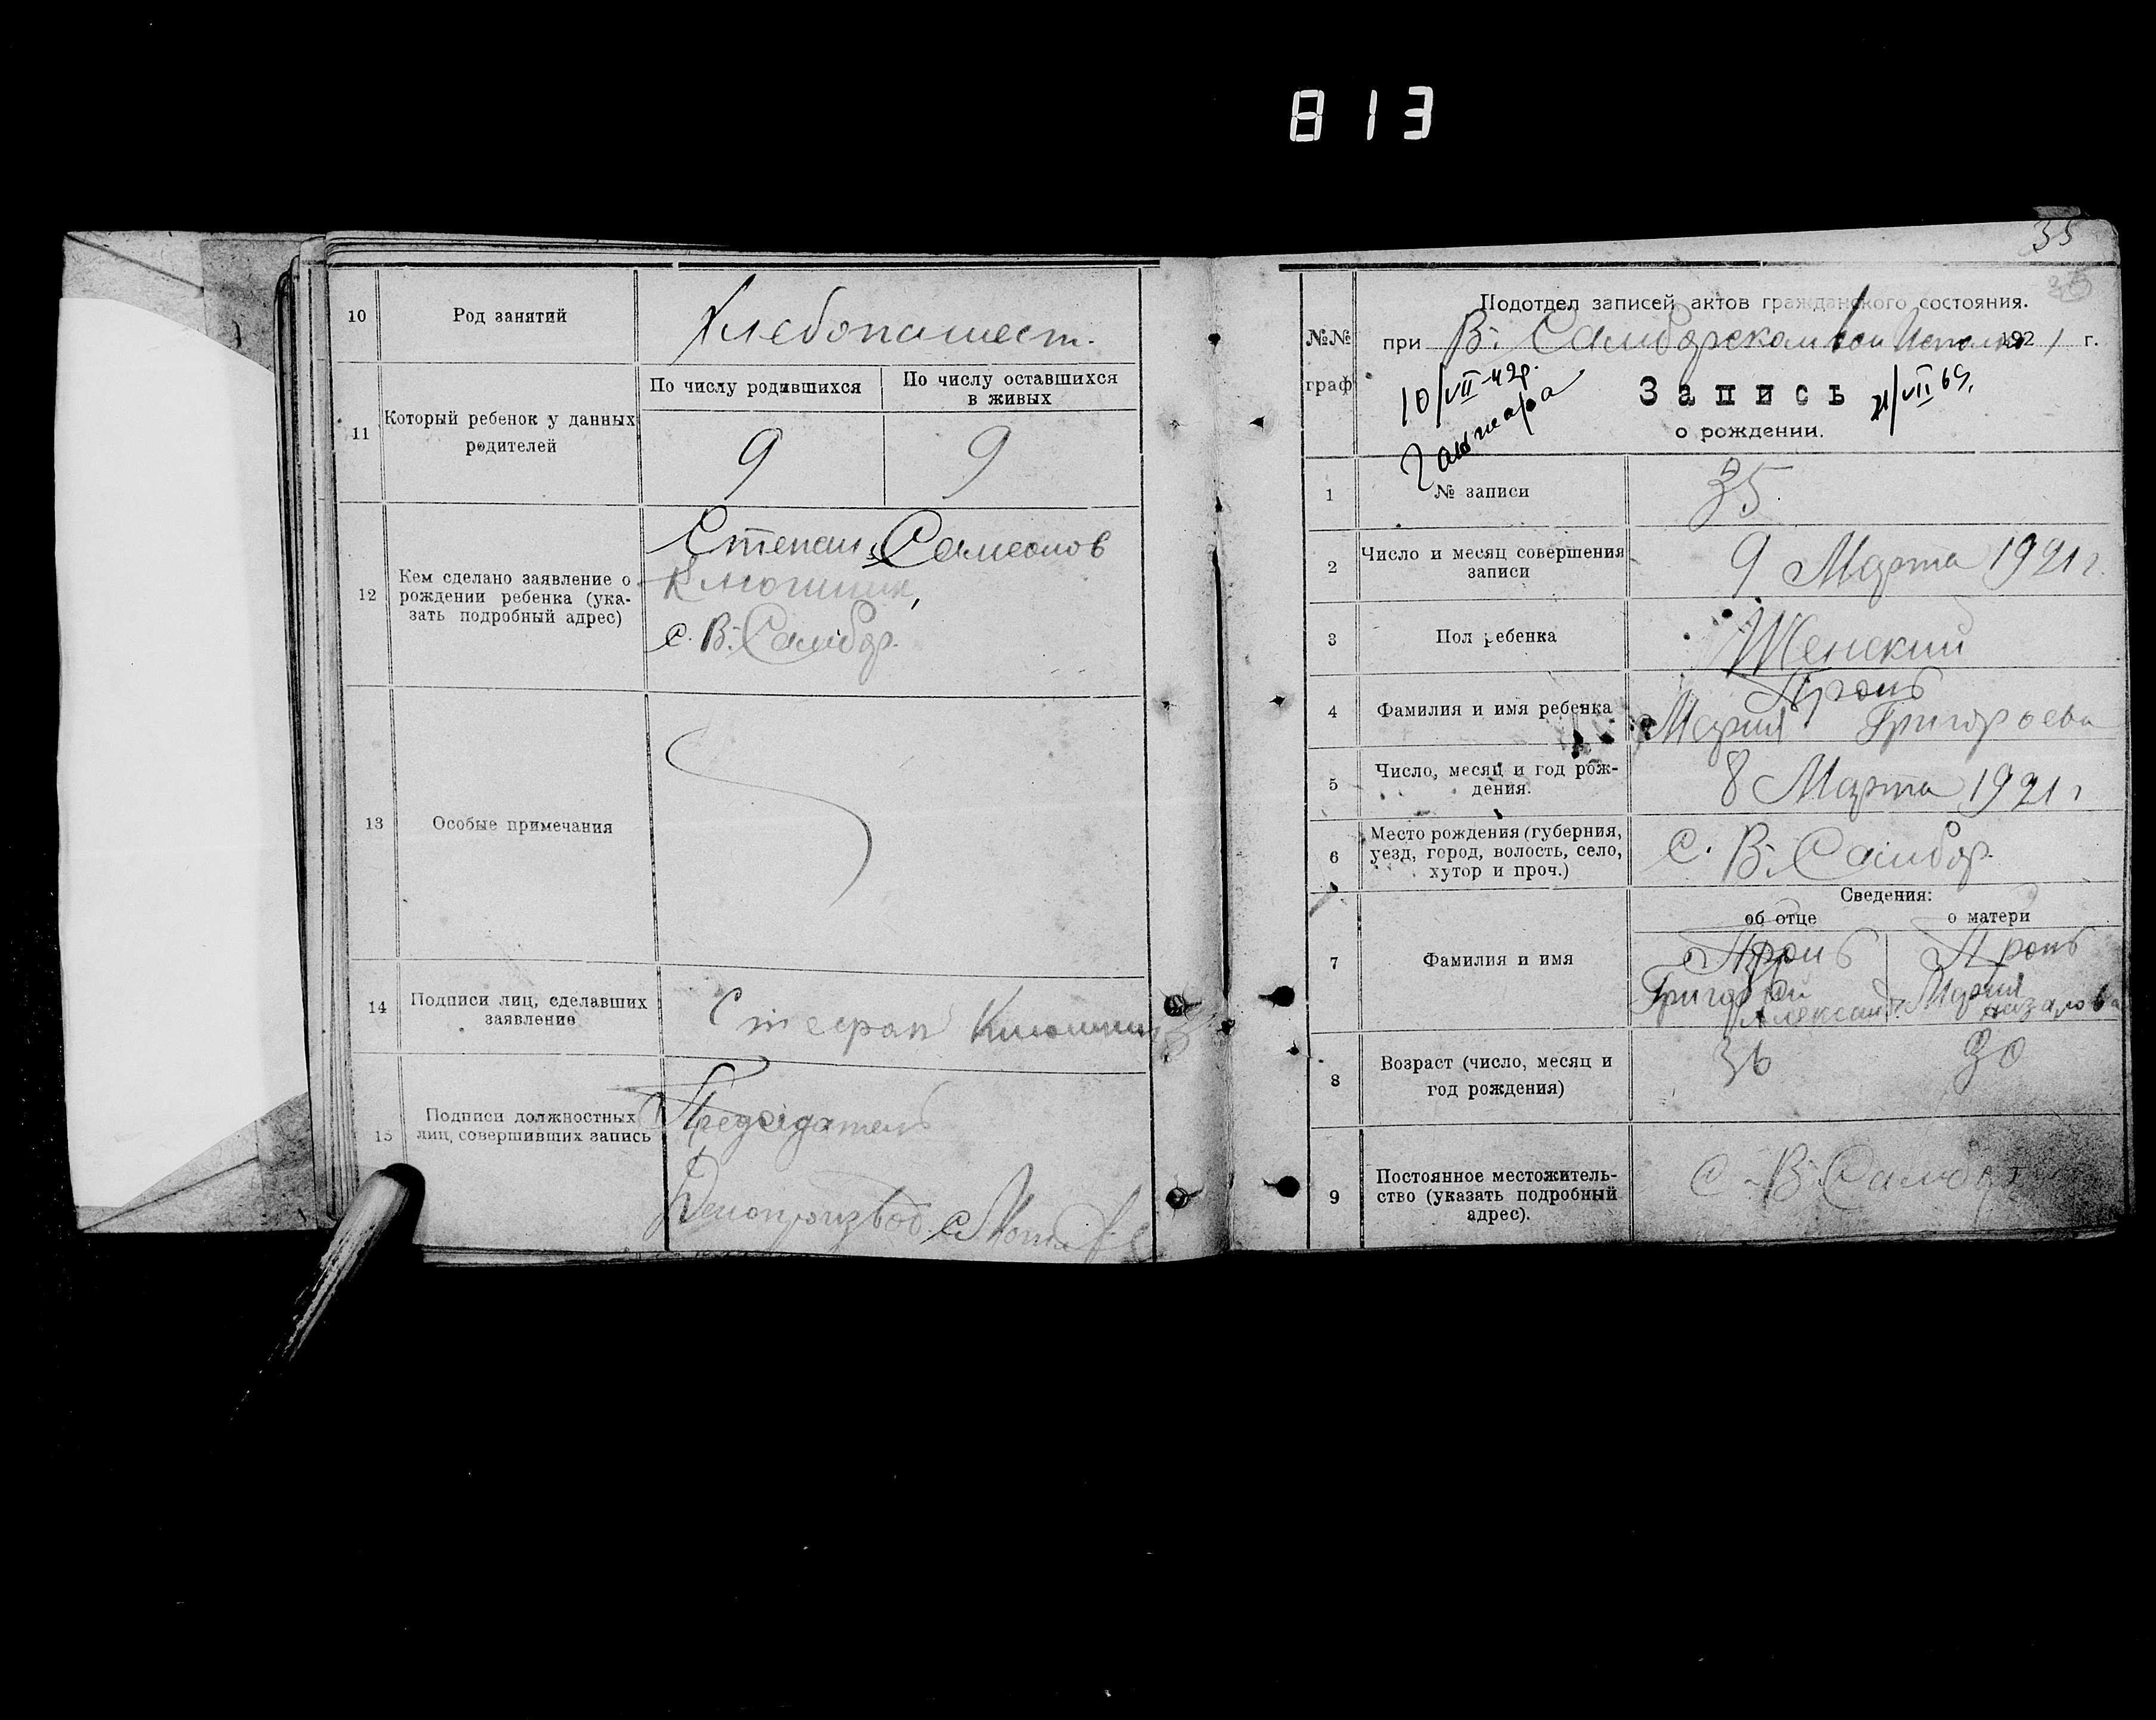 813
10 Род занятий Хлебопашест.
11 Который ребенок у данных родителей
По числу родившихся По числу оставшихся в живых
9 9
12 Кем сделано заявление о
рождении ребенка (ука-
зать подробный адрес)
Степан Самсонов
с. В. Самбор.
13 Особые примечания
14 Подписи лиц, сделавших
заявление
Стефан
15 Подписи должностных
лиц, совершивших запись
Председатель
Делопроизвод. С
35
№№ граф
Подотдел записей актов гражданского состояния.
при В. Самборском 1921 г.
10/VII-42р.
Запись
21/VII 69.
о рождении.
1 № записи 35
2 Число и месяц совершения
записи
9 Марта 1921 г.
3 Пол ребенка Женский
4 Фамилия и имя ребенка
Мария Григорьева
5 Число, месяц и год рож-
дения.
8 Марта 1921 г
6 Место рождения (губерния,
уезд, город, волость, село,
хутор и проч.)
с. В. Самбор.
Сведения:
об отце о матери
7 Фамилия и имя
Григорий Мария
Александр. Назарова
8 Возраст (число, месяц и
год рождения)
36 30
9 Постоянное местожитель-
ство (указать подробный
адрес).
с. В. Самбор